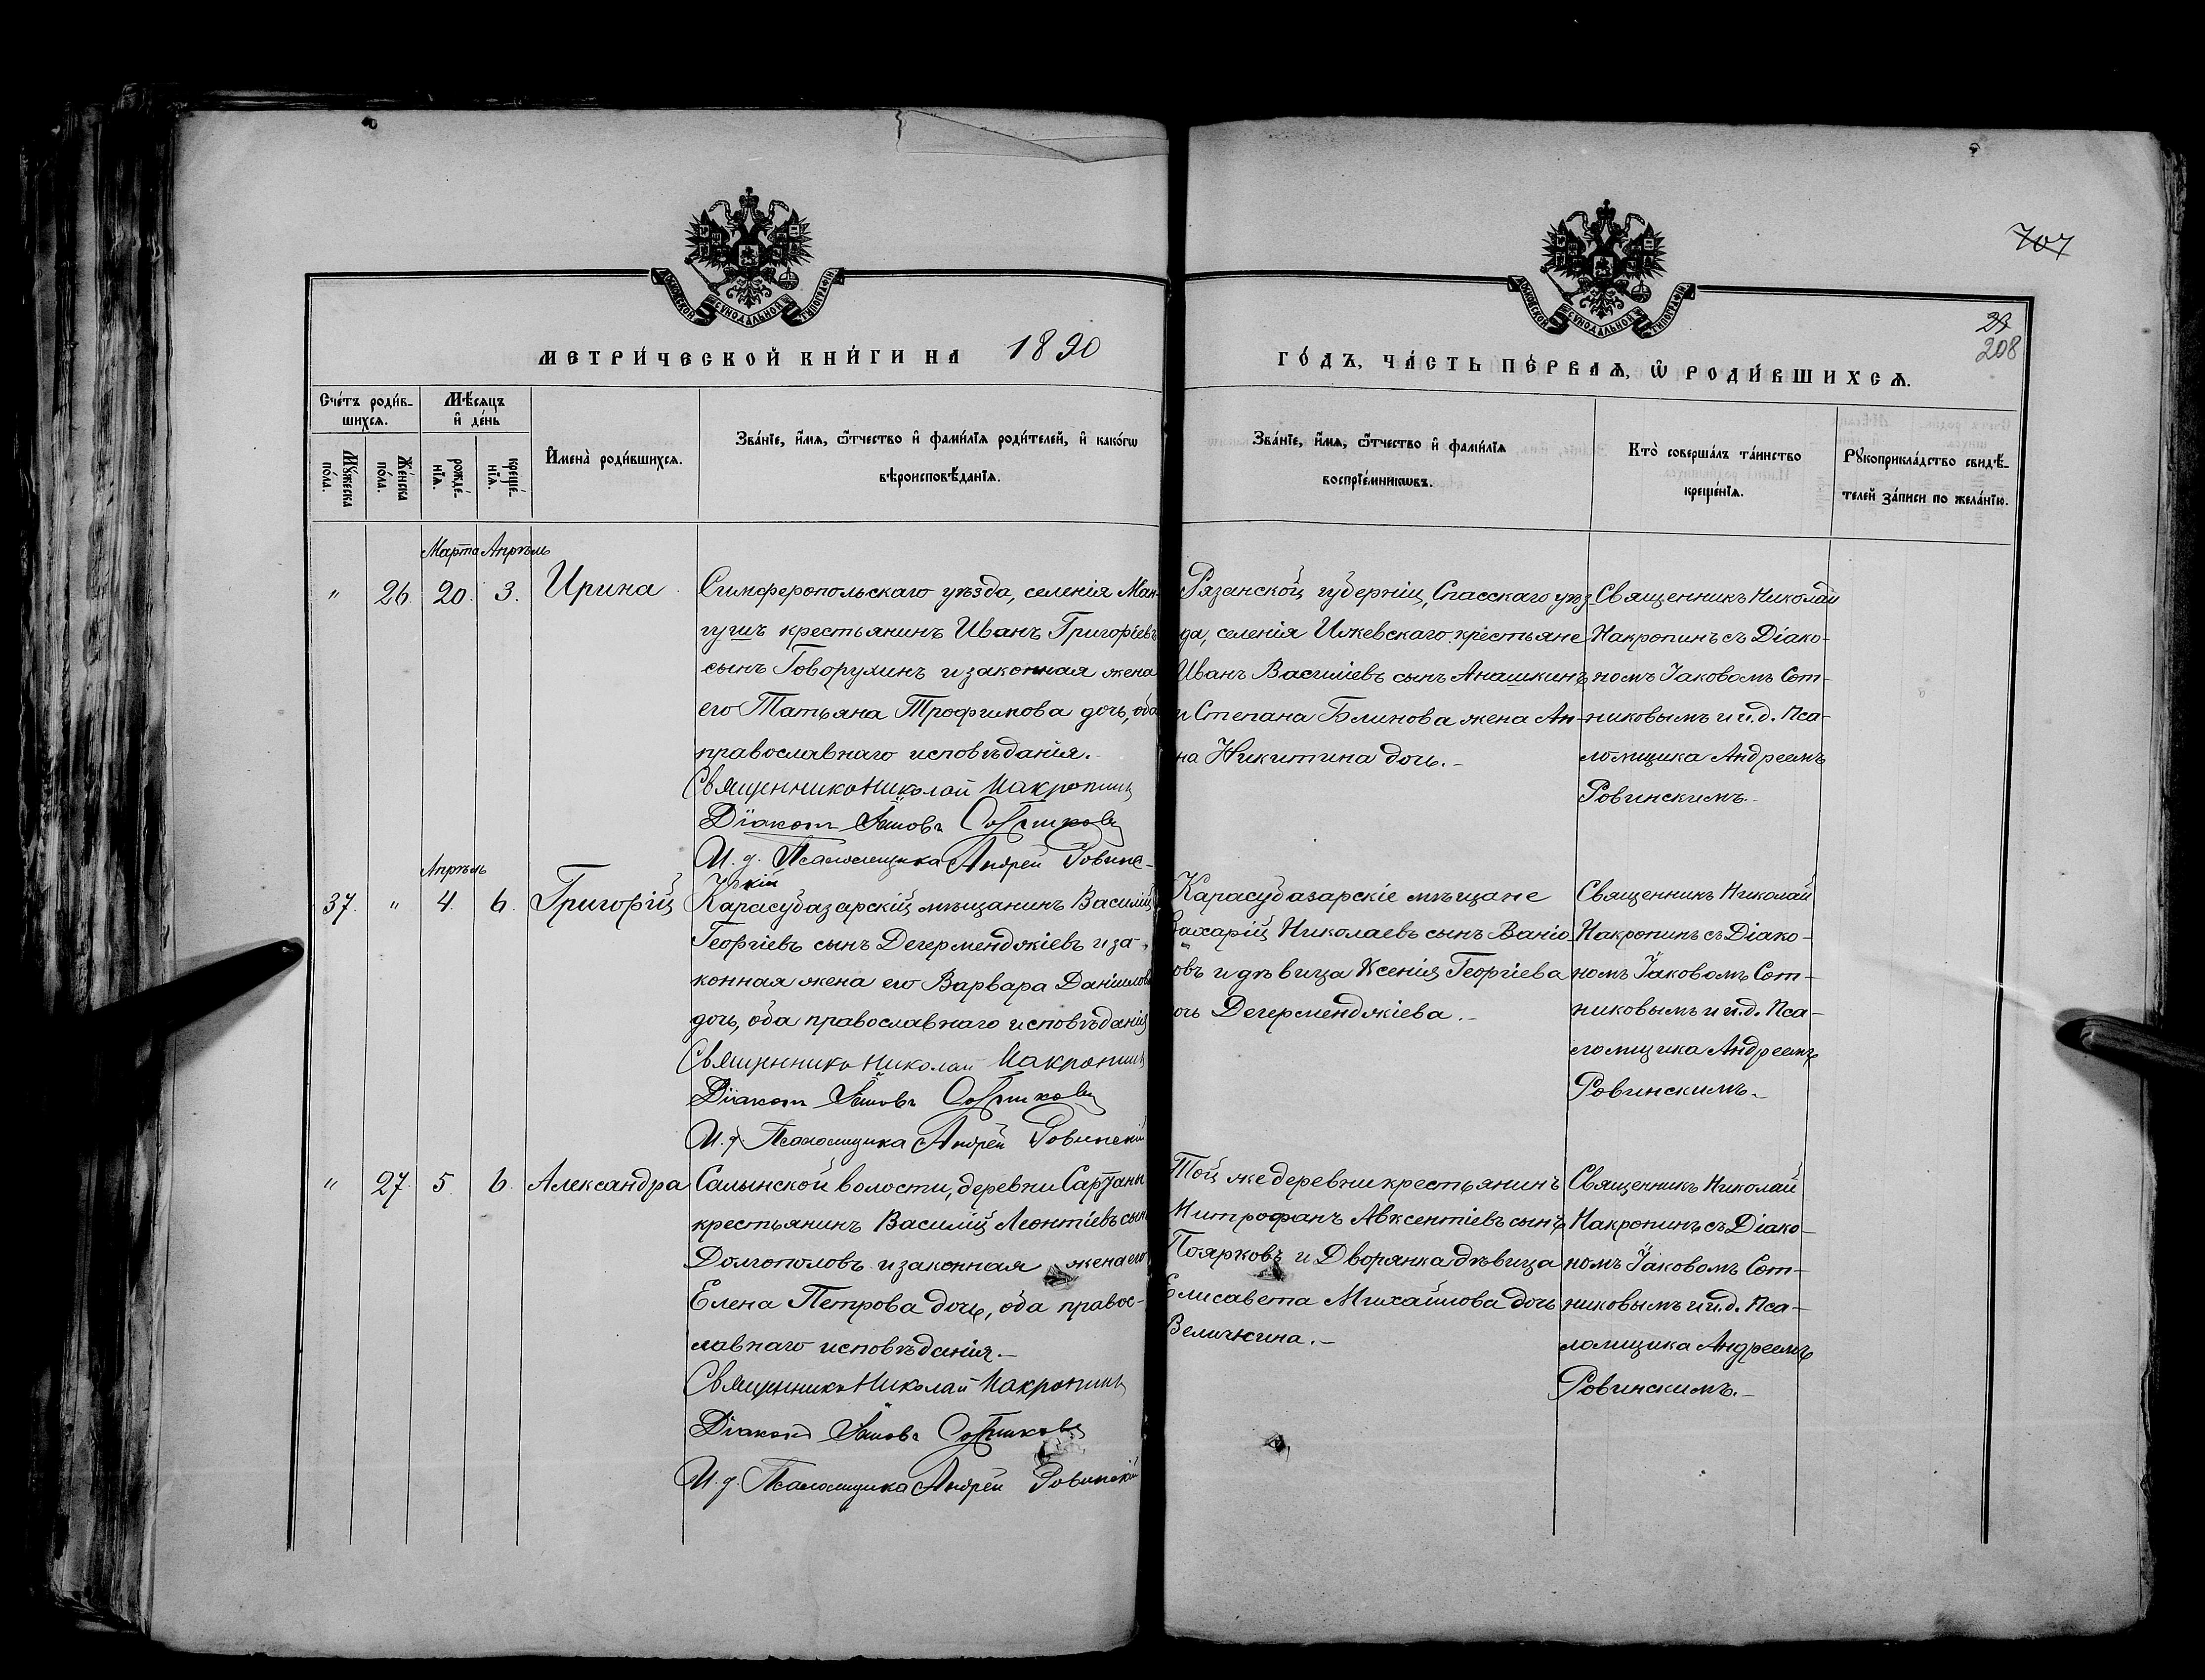 707
29
208
МЕТРИ́ЧЕСКОЙ КНИ́ГИ НА 1890
ГО́ДЪ, ЧА́СТЬ ПЕ́РВАѦ, Ѡ҆ РОДИ́ВШИХСѦ.
Сче́тъ роди́в-
шихсѧ.
Мꙋ́жеска по́ла.
Же́нска по́ла.
Мѣ́сѧцъ
и҆ де́нь
рожде́-
нїѧ.
креще́-
нїѧ.
И҆мена̀ роди́вшихсѧ.
Зва́нїе, и҆́мѧ, ѻ҆́тчество и҆ фами́лїѧ роди́телей, и҆ како́гѡ
вѣроисповѣ́данїѧ.
Зва́нїе, и҆́мѧ, ѻ҆́тчество и҆ фами́лїѧ
воспрїе́мникѡвъ.
Кто̀ соверша́лъ та́инство
креще́нїѧ.
Рꙋкоприкла́дство свидѣ́-
телей за́писи по жела́нїю.
Марта Апрѣль
" 26. 20. 3. Ирина
Симферопольскаго уѣзда, селенія Ман-
гушъ крестьянинъ Иванъ Григоріевъ
сынъ Говорухинъ и законная жена
его Татьяна Трофимова дочь, оба
православнаго исповѣданія.
Священникъ Николай Макропинъ
Діаконъ Іаковъ Сотниковъ
И. д. Псаломщика Андрей Ровинс-
кій
Рязанской губерніи, Спасскаго уѣз-
да, селенія Ижевскаго крестьяне
Иванъ Василіевъ сынъ Анашкинъ
и Степана Блинова жена Ан-
на Никитина дочь.
Священникъ Николай
Макропинъ съ Діако-
номъ Іаковомъ Сот-
никовымъ и и. д. Пса-
ломщика Андреемъ
Ровинскимъ.
Апрѣль
37. " 4. 6. Григорій
Карасубазарскій мѣщанинъ Василій
Георгіевъ сынъ Дегерменджіевъ и за-
конная жена его Варвара Даніилова
дочь, оба православнаго исповѣданія
Священникъ Николай Макропинъ
Діаконъ Іаковъ Сотниковъ
И. д. Псаломщика Андрей Ровинскій
Карасубазарскіе мѣщане
Захарій Николаевъ сынъ Ваніо-
овъ и дѣвица Ксенія Георгіева
очь Дегерменджіева.
Священникъ Николай
Макропинъ съ Діако-
номъ Іаковомъ Сот-
никовымъ и и. д. Пса-
ломщика Андреемъ
Ровинскимъ.
" 27. 5. 6. Александра
Салынской волости, деревни Сартаны
крестьянинъ Василій Леонтіевъ сынъ
Долгополовъ и законная жена его
Елена Петрова дочь, оба правос-
лавнаго исповѣданія.
Священникъ Николай Макропинъ
Діаконъ Іаковъ Сотниковъ
И. д. Псаломщика Андрей Ровинскій
Той же деревни крестьянинъ
Митрофанъ Авксентіевъ сынъ
Поярковъ и Дворянка дѣвица
Елисавета Михайлова дочь
Величкина.
Священникъ Николай
Макропинъ съ Діако-
номъ Іаковомъ Сот-
никовымъ и и. д. Пса-
ломщика Андреемъ
Ровинскимъ.